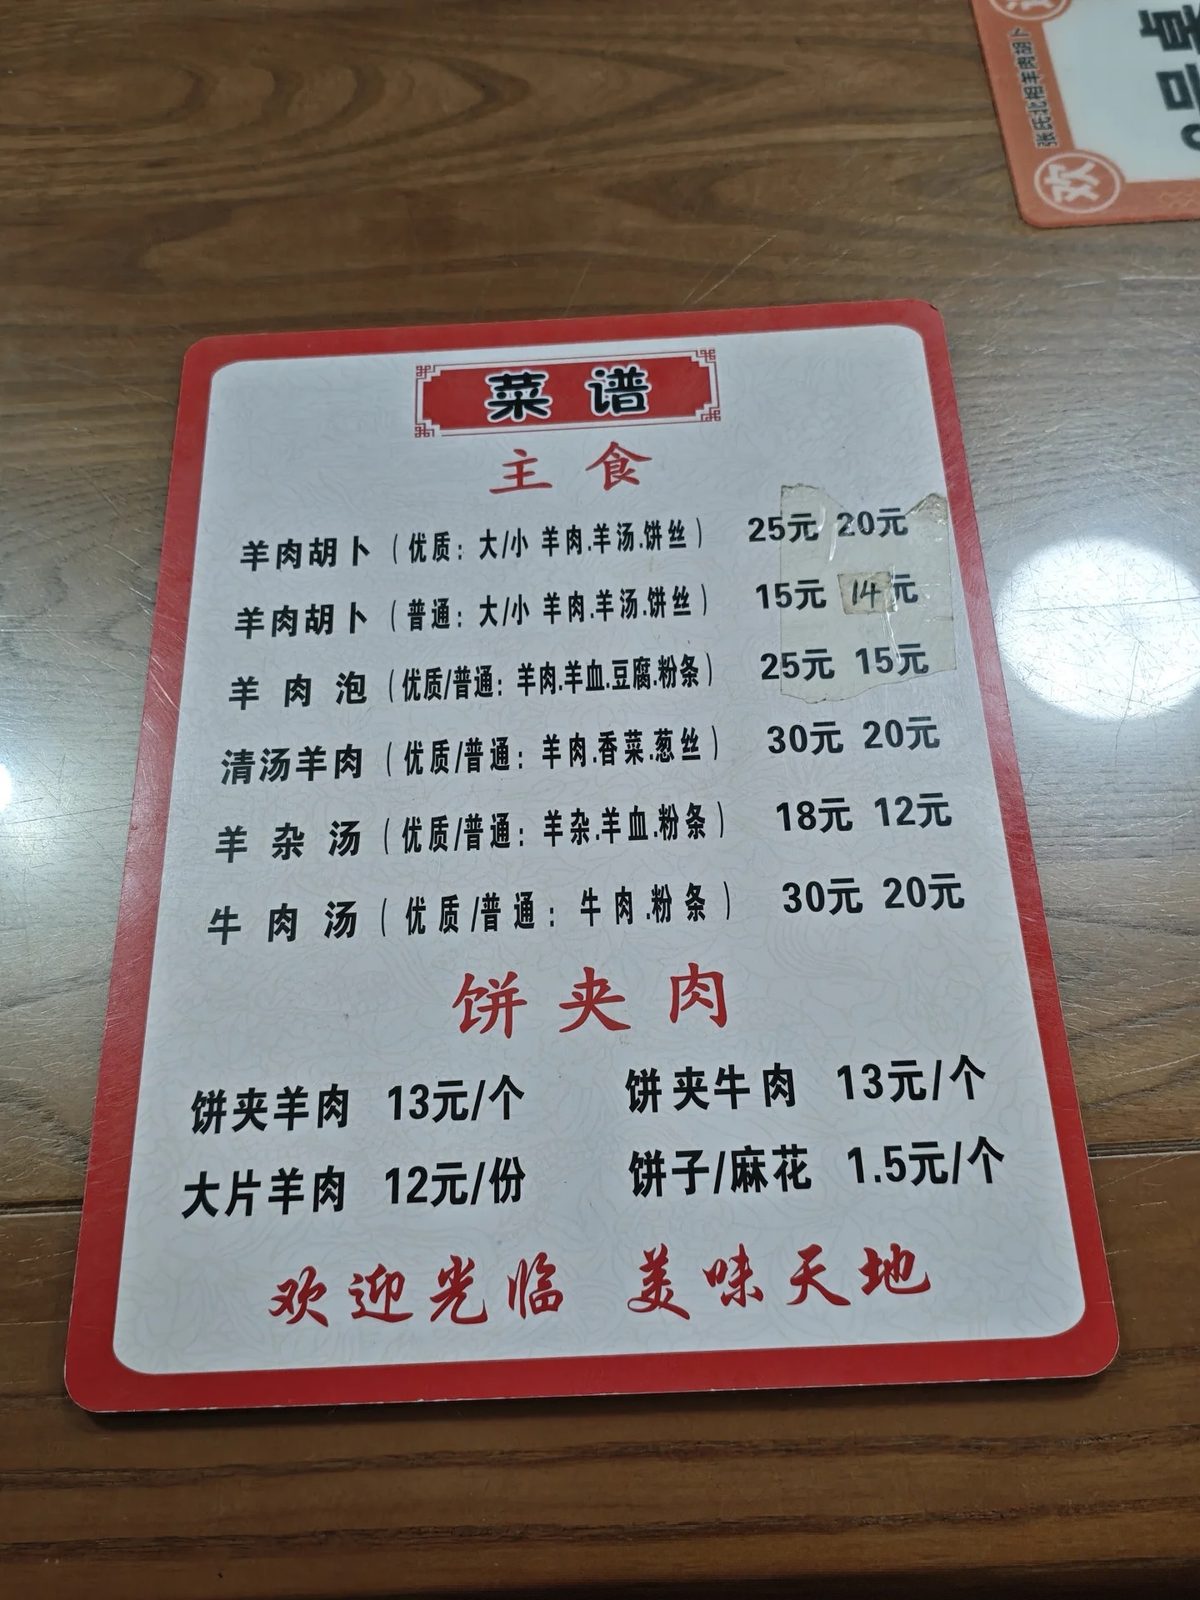 张氏北相羊肉胡卜
欢
号桌
菜谱
主食
羊肉胡卜（优质：大/小 羊肉.羊汤.饼丝） 25元 20元
羊肉胡卜（普通：大/小 羊肉.羊汤.饼丝） 15元 14元
羊肉泡（优质/普通：羊肉.羊血.豆腐.粉条） 25元 15元
清汤羊肉（优质/普通：羊肉.香菜.葱丝） 30元 20元
羊杂汤（优质/普通：羊杂.羊血.粉条） 18元 12元
牛肉汤（优质/普通：牛肉.粉条） 30元 20元
饼夹肉
饼夹羊肉 13元/个 饼夹牛肉 13元/个
大片羊肉 12元/份 饼子/麻花 1.5元/个
欢迎光临 美味天地